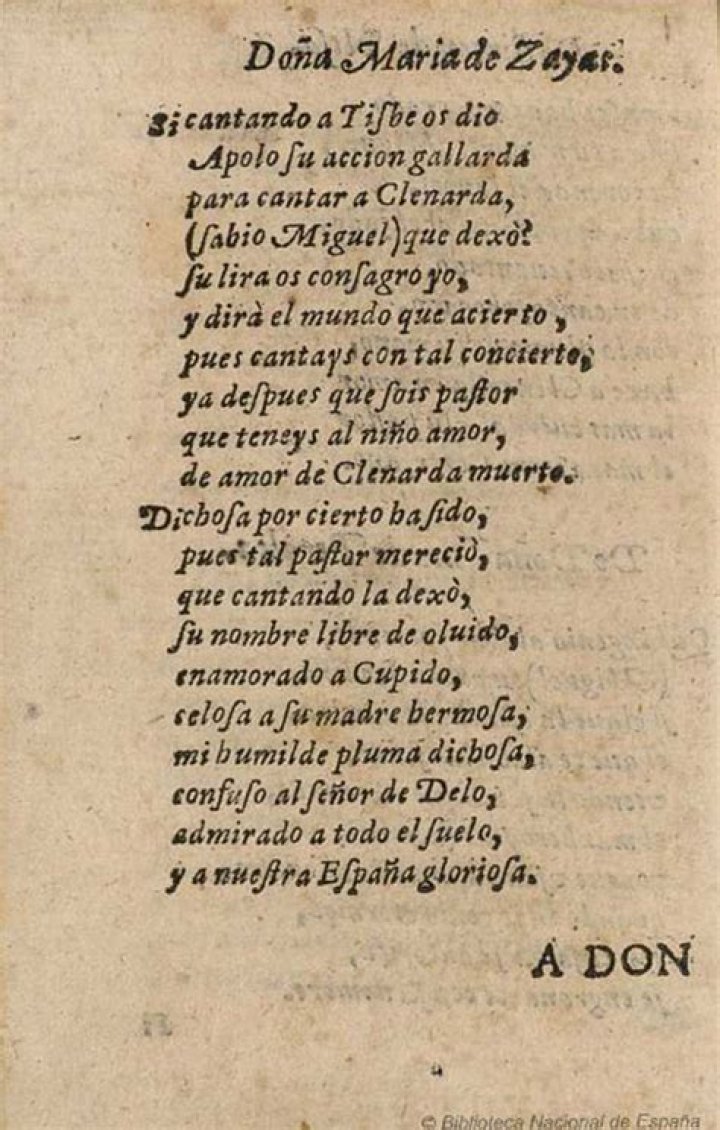 Doña Maria de Zayas.
Si cantando a Tiſbe os dio
Apolo ſu accion gallarda
para cantar a Clenarda,
(ſabio Miguel) que dexò?
ſu lira os conſagro yo,
y dirà el mundo que acierto,
pues cantays con tal concierto,
ya deſpues que ſois paſtor
que teneys al niño amor,
de amor de Clenarda muerto.
Dichoſa por cierto ha ſido,
pues tal paſtor mereciò,
que cantando la dexò,
ſu nombre libre de oluido,
enamorado a Cupido,
celoſa a ſu madre hermoſa,
mi humilde pluma dichoſa,
confuſo al ſeñor de Delo,
admirado a todo el ſuelo,
y a nueſtra Eſpaña glorioſa.
A DON
© Biblioteca Nacional de España